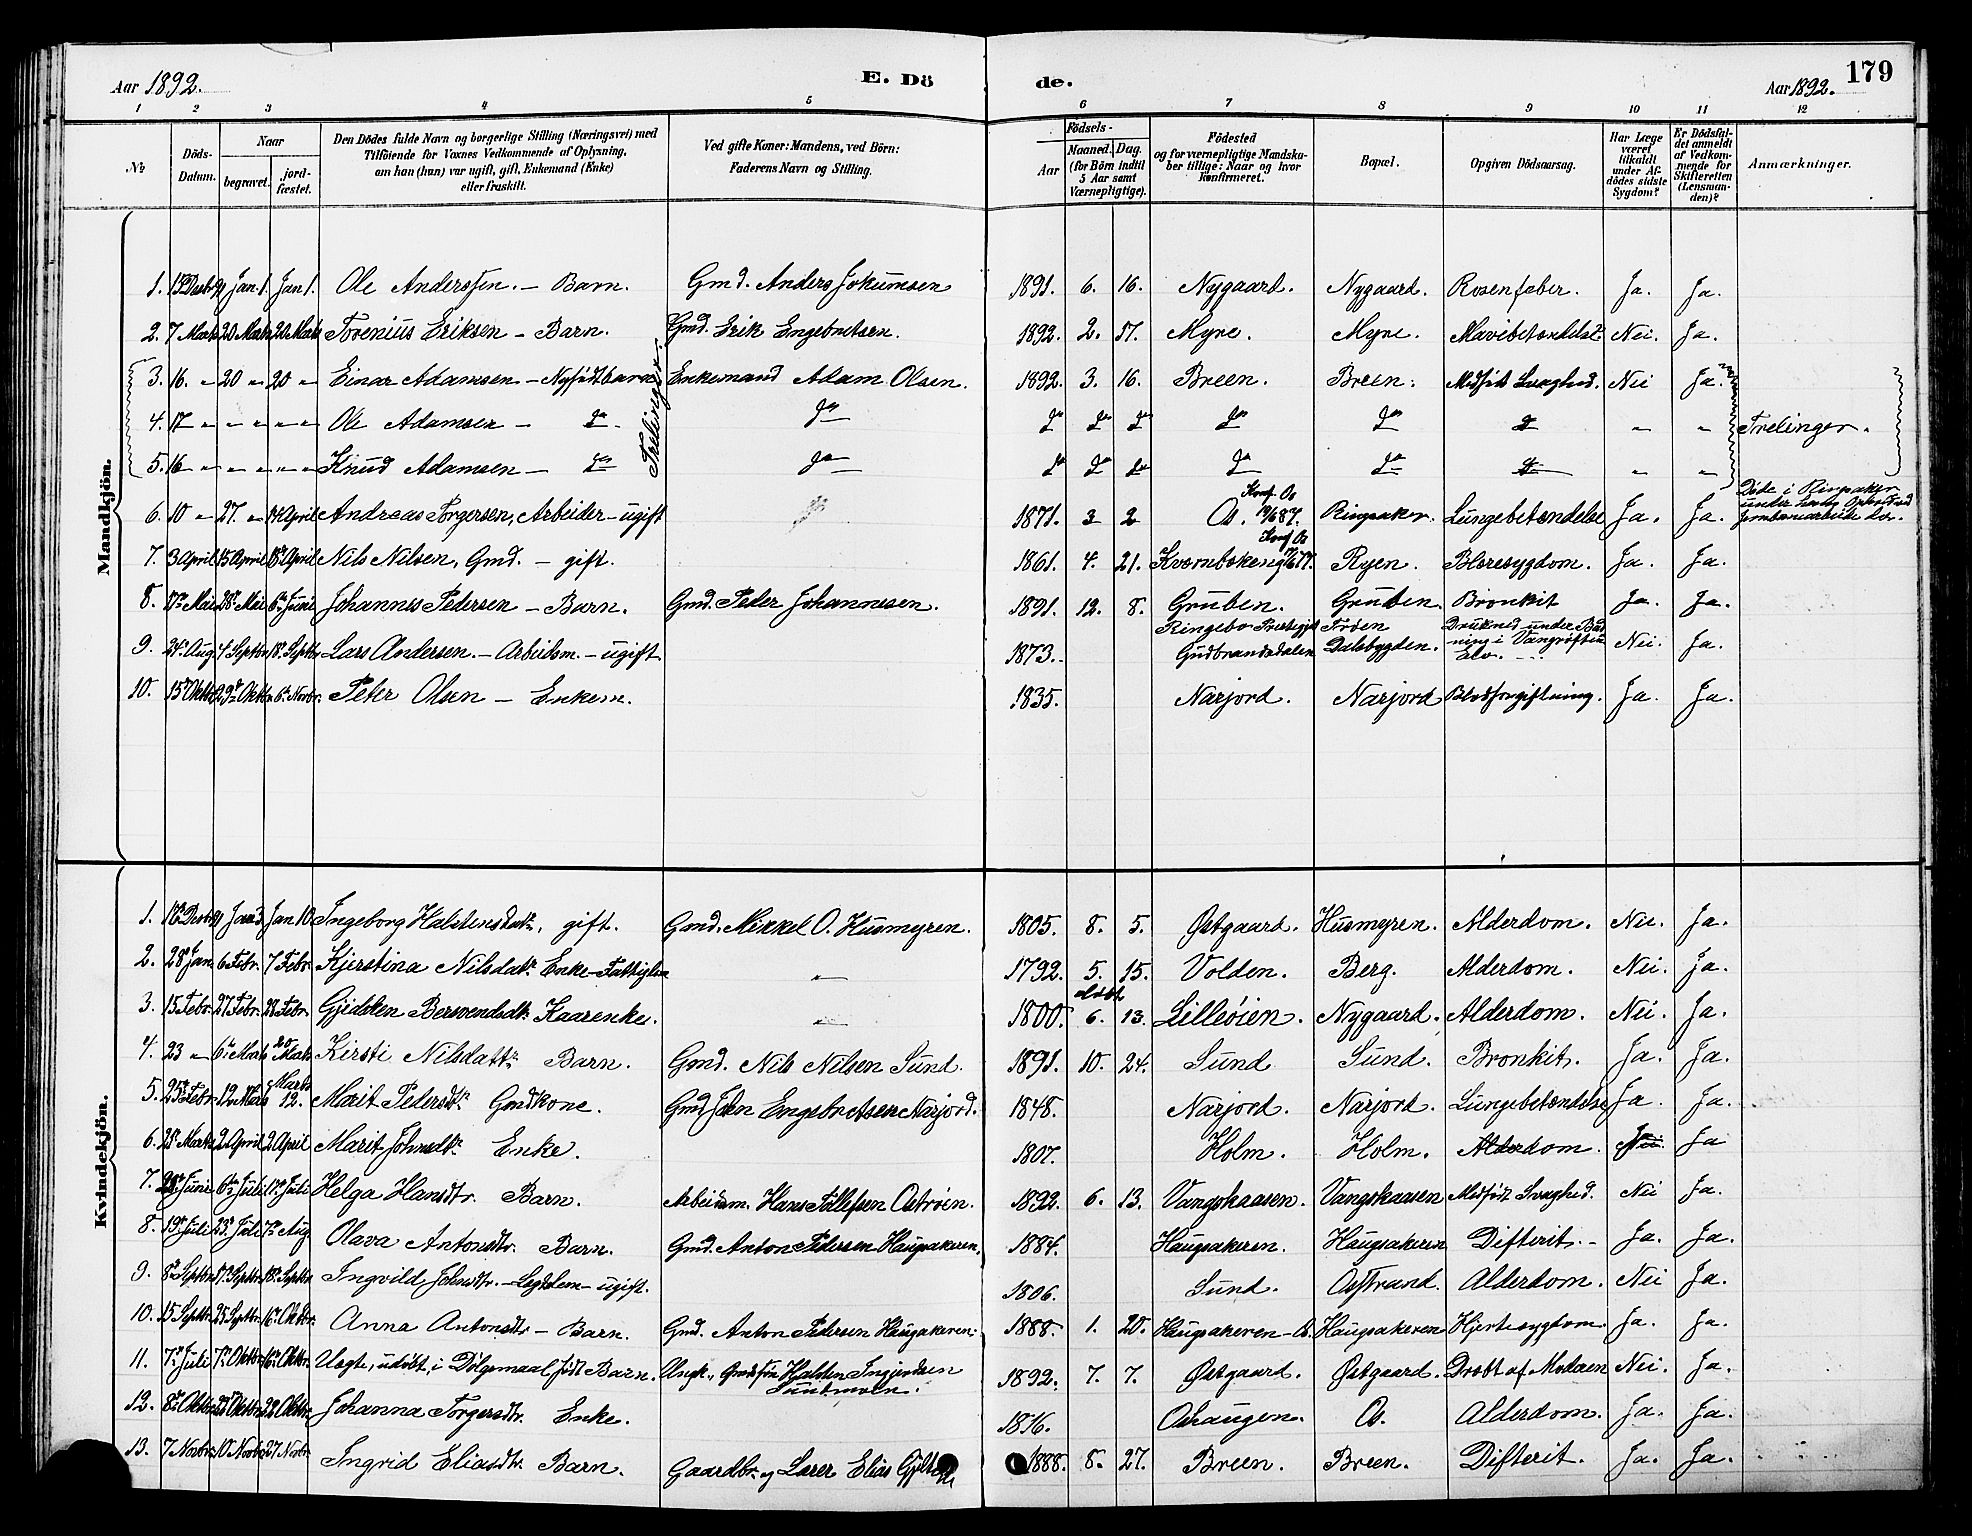 Aar 1892. E. Dö de. Aar 1892. 179
1 2 3 4 5 6 7 8 9 10 11 12
No Döds-Datum. Naar begravet. jordfæstet. Den Dödes fulde Navn og borgerlige Stilling (Næringsvei) med Tilföiende for Voxnes Vedkommende af Oplysning, om han (hun) var ugift, gift, Enkemand (Enke) eller fraskilt. Ved gifte Koner: Mandens, ved Börn: Faderens Navn og Stilling. Födsels- Aar Maaned. Dag. (for Börn indtil 5 Aar samt Værnepligtige). Födested og for værnepligtige Mandskaber tillige: Naar og hvor konfirmeret. Bopæl. Opgiven Dödsaarsag. Har Læge været tilkaldt under Afdödes sidste Sygdom? Er Dödsfaldet anmeldt af Vedkommende for Skifteretten (Lensmanden)? Anmærkninger.
Mandkjön.
1. 15 Decbr 91 Jan. 1. Jan 1. Ole Anderssen. – Barn. Gmd. Anders Jokumsen 1891. 6. 16. Nygaard. Nygaard. Rosenfeber. Ja. Ja.
2. 7 Marts 20 Marts 20 Marts Torenius Eriksen – Barn. Gmd. Erik Engebretsen. 1892. 2. 17. Myre. Myre. Mavebetændelse. Nei. Ja.
3. 16. " 20 " 20 " Einar Adamsen – Nyfødt barn Enkemand Adam Olsen. 1892. 3. 16. Breen. Breen. Medfødt Svaghed. Nei Ja.
4. 17 " " " " " Ole Adamsen – do do do do do do do do " " Trelinger.
5. 16 " " " " " Knud Adamsen – do do do do do do do do " "
Trelinger.
6. 10 " 27. " 18 April Andreas Torgersen, Arbeider – ugift do 1871. 3 2 Os. Konf. Os 19/6 87. Ringsaker. Lungebetændelse Ja. Ja. Døde i Ringsaker under Jernbanearbeide der.
7. 3 April 15 April 18 April Nils Nilsen, Gmd. – gift. 1861. 4. 21. Kvernbekeng Konf Os 77. Ryen. Blæresygdom. Ja. Ja.
8. 17de Mai 28de Mai 6te Juni Johannes Pedersen – Barn. Gmd. Peder Johannesen. 1891. 12. 8. Gruben. Gruben. Bronkit Ja. Ja.
9. 24de Aug 4 Septbr 18 Septbr Lars Andersen. – Arbeidsm. – ugift 1873. Ringebo Prestegjeld Gudbrandsdalen Trøen Dalsbygden. Druknet under Badning i Vangrøften Elv. Nei. Ja.
10. 15de Oktbr 29de Oktbr 6te Novbr. Peter Olsen – Enkem. 1835. Narjord. Narjord Blodforgiftning. Ja. Ja.
Kvindekjön.
1. 16 Decbr 91 Jan 3. Jan 10. Ingeborg Halstensdatr, gift. Gmd. Mikkel O. Husmyren. 1805. 8. 5. Østgaard. Husmyren. Alderdom. Nei. Ja.
2. 28 Jan 6 Febr. 7 Febr. Kjerstina Nilsdatr Enke – Fattiglem " 1792. 5. 15. Volden. Berg. Alderdom. Nei. Ja.
3. 15 Febr. 27 Febr. 28 Febr. Gjedsken Bersvendsdtr Kaarenke. " 1800. døbt 6. 13. Lilleøien. Nygaard. Alderdom. Nei. Ja.
4. 23 " 6te Marts 20 Marts Kirsti Nilsdattr Barn. Gmd. Nils Nilsen Sund. 1891. 10. 24. Sund Sund. Bronkit. Ja. Ja.
5. 25de Febr. 12 Marts Marts 12. Marit Pedersdtr Gmdkone. Gmd John Engebretsen Narjord. 1848. Narjord. Narjord. Lungebetændelse Ja. Ja.
6. 25 Marts 2 April 2 April Marit Johnsdtr Enke. 1807. Holm. Holm. Alderdom. Nei Ja Ja
7. 28de Juni 6te Juli 17de Juli Helga Hansdtr. Barn. Arbeidsm. Hans Tollefsen Østrøen. 1892. 6. 13. Vangskaasen. Vangskaasen Medfødt Svaghed. Nei Ja.
8. 19de Juli 23de Juli 7de Aug Olava Antonsdtr. Barn. Gmd. Anton Pedersen Haugsakeren. 1884. Haugsakeren. Haugsakeren Difterit. – Ja. Ja.
9. 8de Septbr 17de Septbr 18de Septbr Ingvild Johnsdtr. – Lægdslem – ugift. 1806. Sund. Østrand. Alderdom. Nei Ja.
10. 15 Septbr. 25 Septbr. 16de Oktbr. Anna Antonsdtr – Barn. Gmd. Anton Pedersen Haugakeren. 1888. 1. 20. Haugsakeren – Os. Haugsakeren Hjertesygdom. Ja. Ja.
11. 7de Juli 7de Oktbr 16de Oktbr. Uægte, udøbt, i Dølgsmaal født Barn. Ungk., Gmdssøn Halsten Ingjendsen Sundmoen. 1892. 7. 7. Østgaard. Østgaard. Dræbt af Moderen Nei. Ja.
12. 8de Oktbr 20de Oktbr 22 Oktbr. Johanna Torgersdtr. Enke. 1816. Oshaugen. Os. Alderdom. Ja. Ja.
13. 7 Novbr. 10 Novbr. 27 Novbr. Ingrid Eliasdtr. Barn. Gaardbr. og Lærer Elias Gjelten 1888. 8. 27. Breen. Breen. Difterit. Ja. Ja.